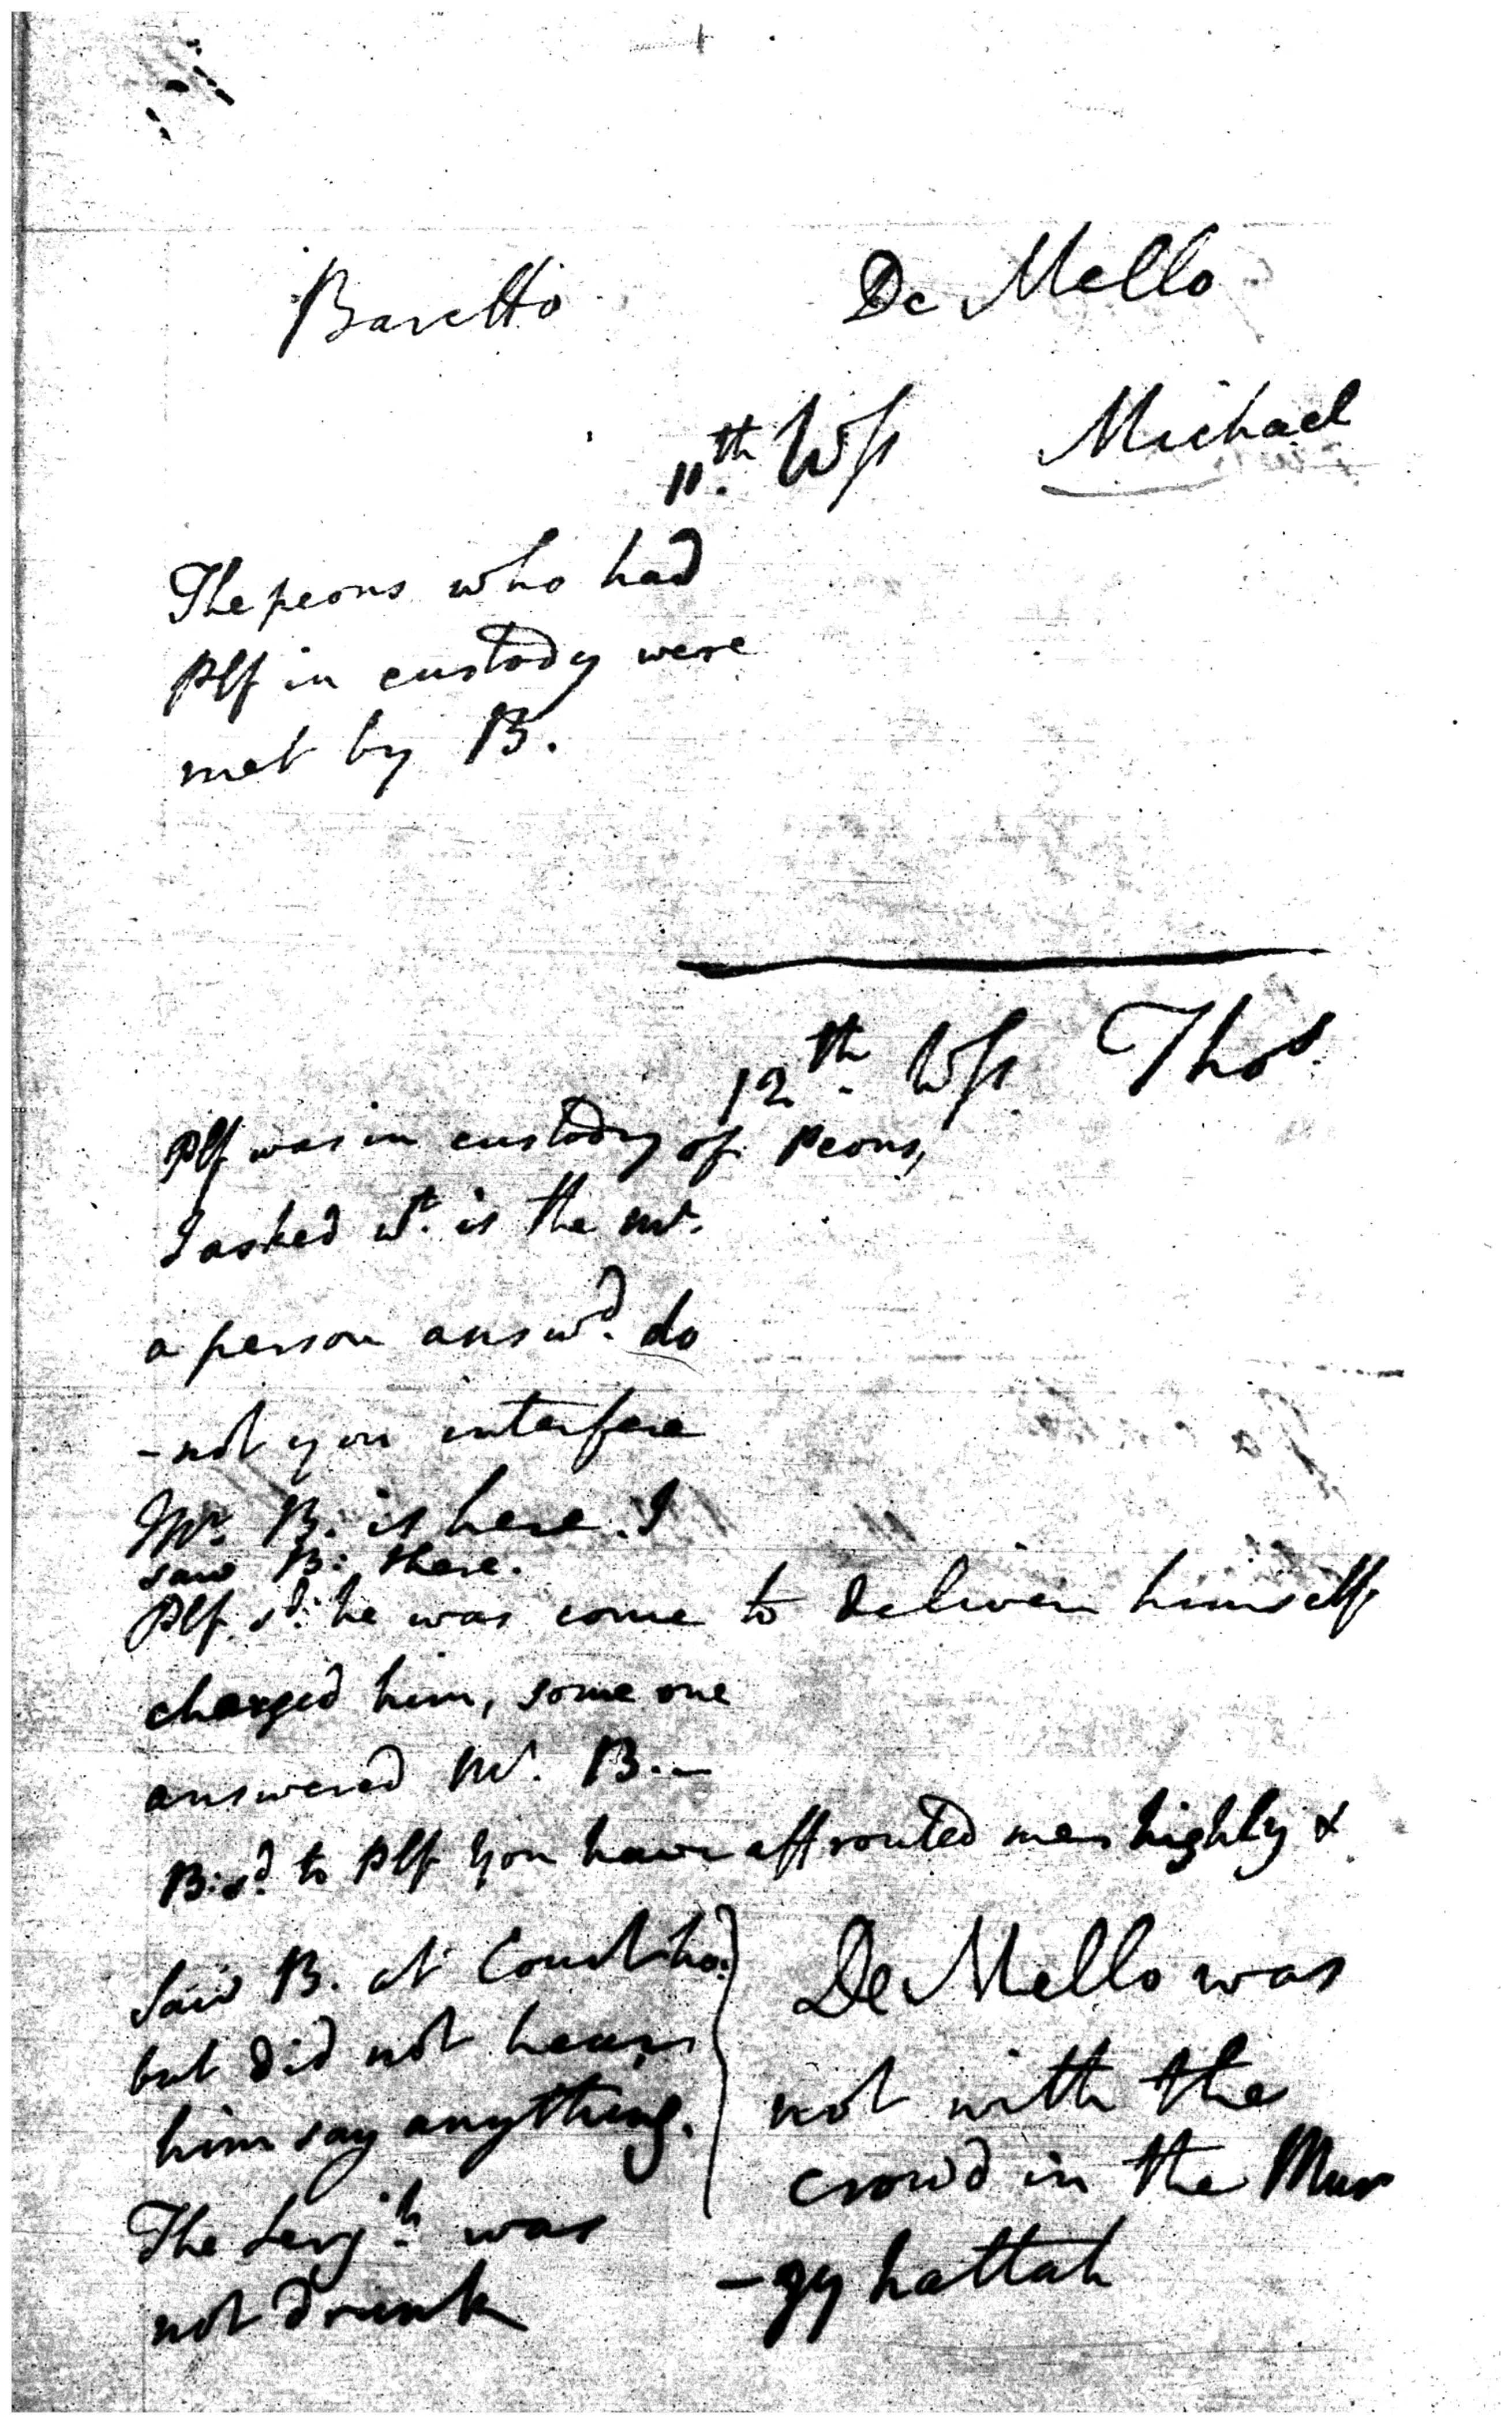 Baretto De Mello
11th. Wss Michael
The peons who had
Plf in custody were
met by B.
12th. Wss Thos.
Plf was in custody of Peons,
I asked wt. is the mr.
a person answd. do
-not you interfere
Mr. B. is here. I
saw B: there.
Plf sd. he was come to deliver himself
charged him, some one
answered Mr. B.-
B: sd. to Plf you have affronted me highly &
saw B. at Court ho:
but did not hear
him say anything.
The Serjt. was
not drunk
De Mello was
not with the
crowd in the Mur
-gy hattah